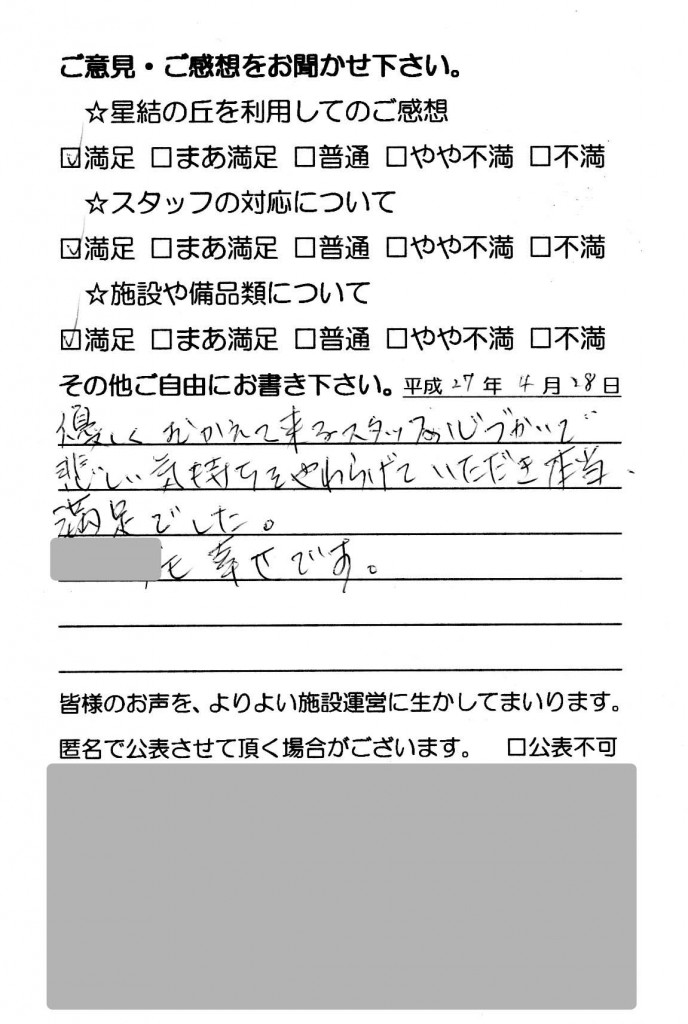 ご意見・ご感想をお聞かせ下さい。
☆星結の丘を利用してのご感想
☑満足 □まあ満足 □普通 □やや不満 □不満
☆スタッフの対応について
☑満足 □まあ満足 □普通 □やや不満 □不満
☆施設や備品類について
☑満足 □まあ満足 □普通 □やや不満 □不満
その他ご自由にお書き下さい。平成27年4月28日
優しくむかえて来るスタッフの心づかいで
悲しい気持ちをやわらげていただき本当、
満足でした。
も幸せです。
皆様のお声を、よりよい施設運営に生かしてまいります。
匿名で公表させて頂く場合がございます。 □公表不可